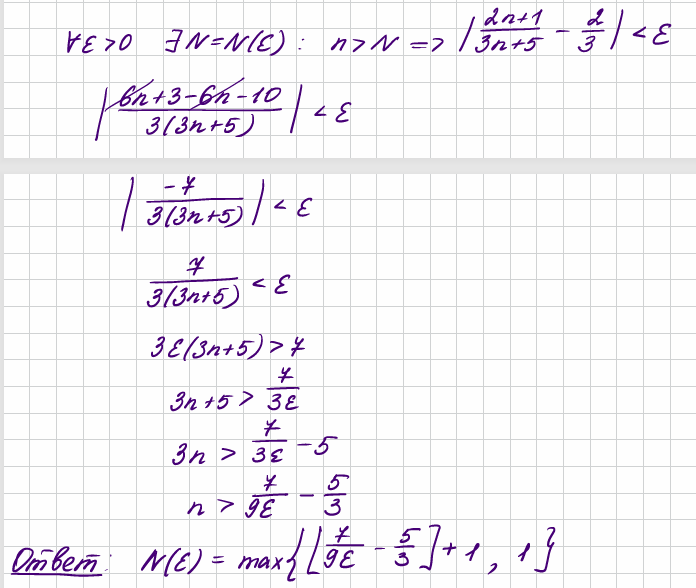 ∀ε>0 ∃N=N(ε): n>N => |(2n+1)/(3n+5) - 2/3| < ε
|(6n+3-6n-10)/(3(3n+5))| < ε
|(-7)/(3(3n+5))| < ε
7/(3(3n+5)) < ε
3ε(3n+5)>7
3n+5 > 7/(3ε)
3n > 7/(3ε) - 5
n > 7/(9ε) - 5/3
Ответ: N(ε) = max{[7/(9ε) - 5/3]+1, 1}